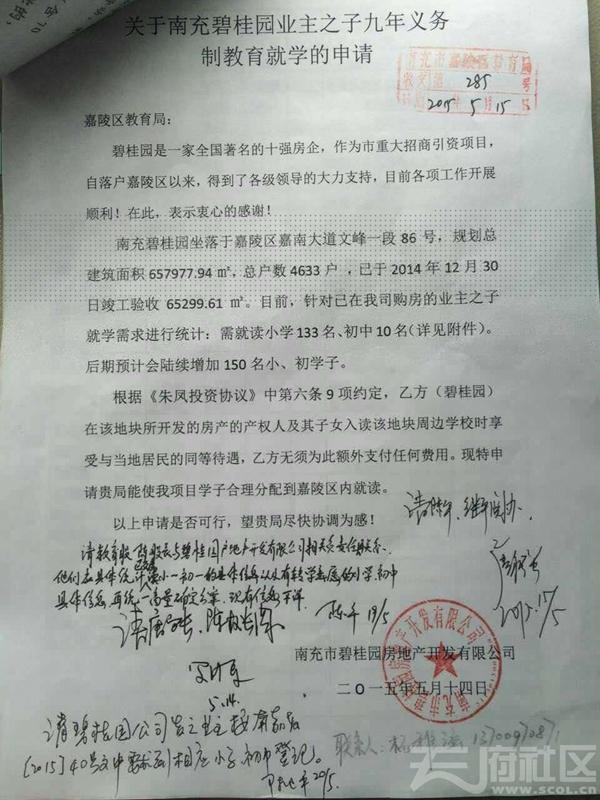 关于南充碧桂园业主之子九年义务
制教育就学的申请
南充市嘉陵区教育局
收文第 285 号
2015年5月15日
嘉陵区教育局：
碧桂园是一家全国著名的十强房企，作为市重大招商引资项目，
自落户嘉陵区以来，得到了各级领导的大力支持，目前各项工作开展
顺利！在此，表示衷心的感谢！
南充碧桂园坐落于嘉陵区嘉南大道文峰一段 86 号，规划总
建筑面积 657977.94 ㎡，总户数 4633 户 ，已于 2014 年 12 月 30
日竣工验收 65299.61 ㎡。目前，针对已在我司购房的业主之子
就学需求进行统计：需就读小学 133 名、初中 10 名（详见附件）。
后期预计会陆续增加 150 名小、初学子。
根据《朱凤投资协议》中第六条 9 项约定，乙方（碧桂园）
在该地块所开发的房产的产权人及其子女入读该地块周边学校时享
受与当地居民的同等待遇，乙方无须为此额外支付任何费用。现特申
请贵局能使我项目学子合理分配到嘉陵区内就读。
以上申请是否可行，望贵局尽快协调为感！
请教育股 与碧桂园房地产开发有限公司相关责任人联系，
小一初一的具体信息以及有转学意愿的小学、初中
具体信息，再统一商量确定分案。现有信息不详。
18/5
2015.17/5
南充市碧桂园房地产开发有限公司
二〇一五年五月十四日
南充市碧桂园房地产开发有限公司
5.14.
请碧桂园公司 业主按
[2015]40号文件要求到相应小学、初中登记。
20/5
联系人：
府社区
www.scol.cn